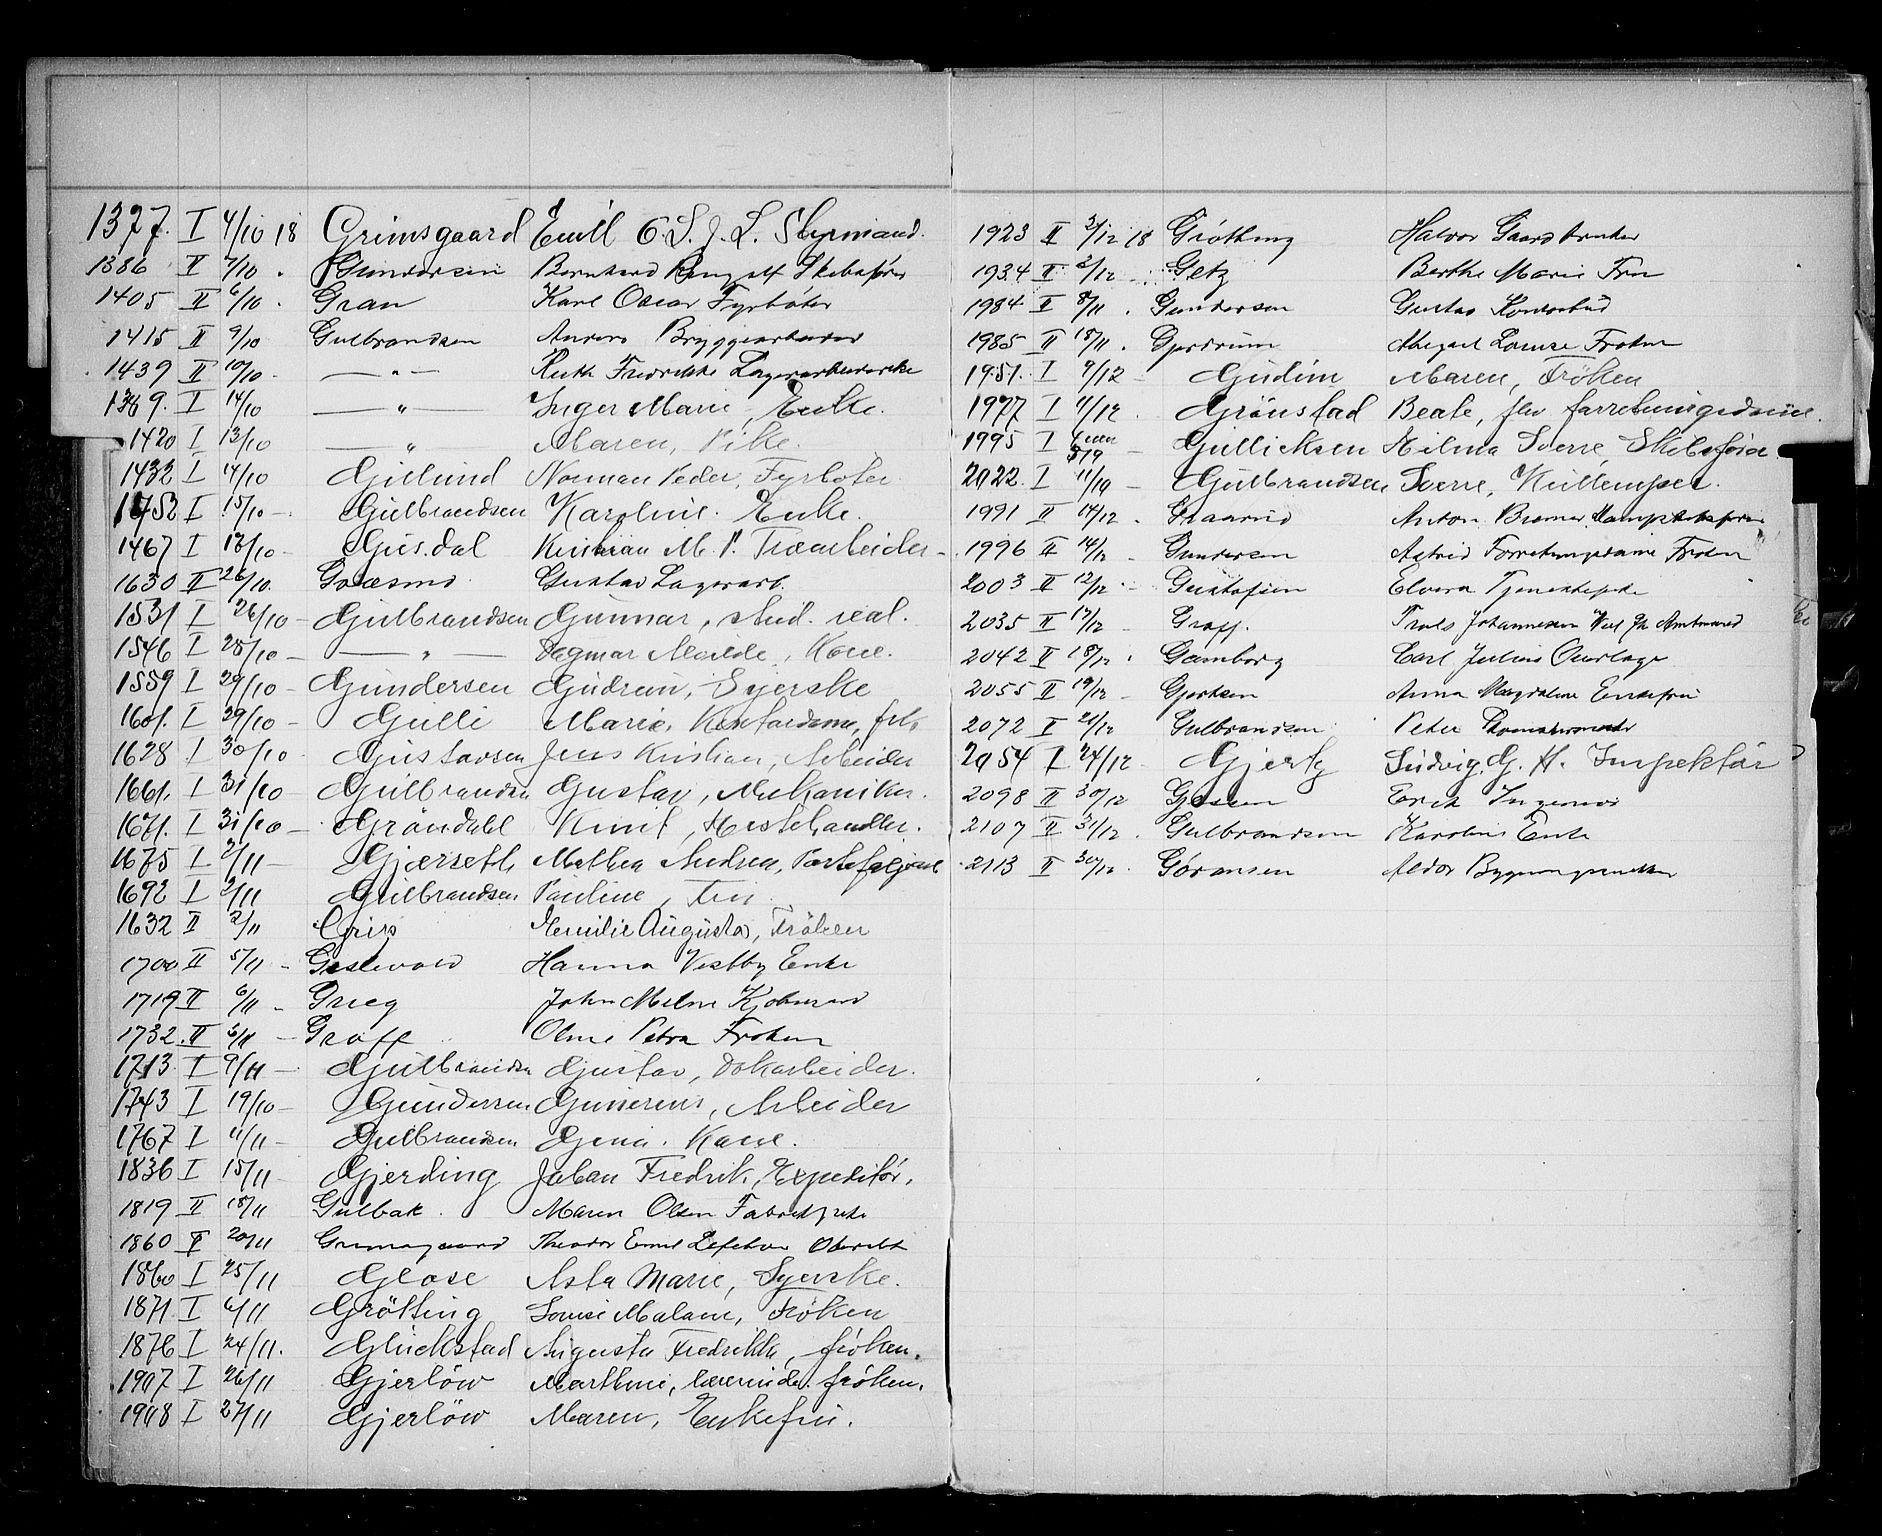 1377. I 4/10 18 Grimsgaard Emil C. S. J. L. Styrmand.
1386 II 7/10 Gundersen Bernhard Skibsfører
1405 II 6/10 . Gran Karl Oscar Fyrbøter
1415 II 9/10 Gulbrandsen Anders Bryggearbeider
1439 II 10/10 — " — Ruth Fredrikke Lagerarbeiderske
1369. I 14/10 — " — Inger Marie, Enke.
1420 I 13/10 — " Maren, Pike.
1432 I 14/10 Gjulund Norman Peder, Fyrbøter.
1452 I 15/10 – Gulbrandsen Karoline. Enke.
1467 I 18/10 – Gusdal Kristian M. P. Træarbeider –
1630 II 26/10. Gustav Lagerarb.
1531 I 26/10 – Gulbrandsen Gunnar, stud. real.
1546 I 28/10 – — " — Dagmar Matilde, Kone.
1559 I 29/10 – Gundersen Gudrun, Syerske
1601. I 29/10 – Gulli Marie, Kontordame, frk.
1628 I 30/10 Gustavsen Jens Kristian, Arbeider
1661. I 31/10 – Gulbrandsen Gustav, Mekaniker.
1671. I 31/10 – Grøndahl Knut, Hestehandler.
1675 I 2/11 – Gjerseth Mathea Andrea,
1692 I 2/11 Gulbrandsen Pauline, Fru
1632 II 2/11 Grip Emilie Augusta, Frøken
1700 II 5/11 – Hanna Vestby Enke
1719 II 6/11 – Grieg John Milne Kjøbmand
1732. II 6/11 – Graff Petra Frøken
1713 I 9/11 – Gulbrandsen Gustav, Dokarbeider.
1743 I 19/10 – Gundersen Gunerius, Arbeider
1767 I 11/11 – Gulbrandsen Gina. Kone.
1836 I 15/11 – Gjerding Johan Fredrik, Expeditør.
1819 II 18/11 Gulbak. Maren Olsen Fabrikpike
1860 II 20/11 Grimsgaard Theodor Emil Lefebvre Oberstlt
1860 I 25/11 Glose Asta Marie, Syerske.
1871. I 6/11 Grøtting Louise Malene, Frøken
1876 I 24/11. Glückstad Augusta Fredrikke, frøken.
1907 I 26/11 Gjerløw Marthine, lærerinde. frøken.
1908 I 27/11 Gjerløw Maren, Enkefru.
1923 II 2/12 18 Grøtting Halvor Gaardbruker
1934 II 2/12 Getz Berthe Marie Fru
1984 I 8/11 . Gundersen Gustav Kontorbud
1985 II 18/11 . Gjerdrum Abigael Louise Frøken
1951. I 9/12 – Gudim Maren, Frøken
1977 I 11/12 . Grønstad Beate, frk forretningsdame.
1995 I Gullicksen Hilma Sverre, Skibsfører
2022. I 11/10 – Gulbrandsen Sverre,
1991 II 14/12 . Graarud Anton
1996 II 14/12 – Gundersen Astrid Forretningsdame Frøken
2003 II 12/12 – Gustafsen Elvera Tjenestepike
2035 II 17/12 – Graff. Truls Johannessen Wiel fh. Amtmand
2042 II 18/12 . Gamborg Carl Julius Overlæge
2055 II 19/12 – Gjertsen Anna Magdalene Enkefru
2072 I 21/12 Gulbrandsen Peter
2054 I 24/12 Gjertz Ludvig. G. H. Inspektør
2098 II 30/12 Erik Ingeniør
2107 II 31/12 . Gulbrandsen Karoline Enke
2113 II 30/12 . Gøransen